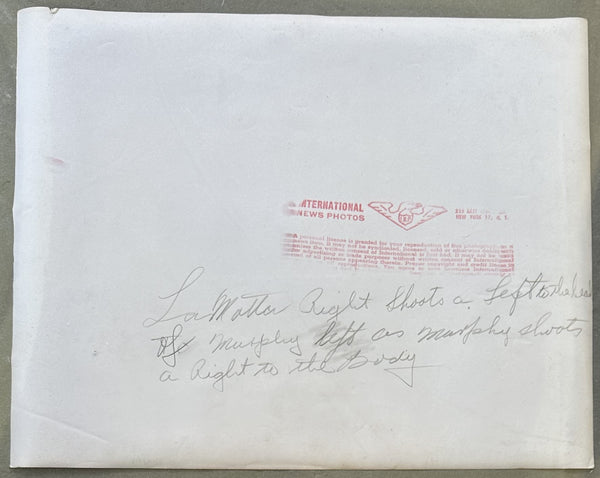 INTERNATIONAL
NEWS PHOTOS
NEW YORK 17, N. Y.
A personal license is granted for your reproduction of this photograph.
it may not be syndicated, licensed, sold or otherwise
unless the written consent of International is first had. It may not be
advertising or trade purposes without written consent of International
of all persons appearing therein. Proper copyright and credit
LaMotta Right Shoots a Left to the
of Murphy left as Murphy shoots
a Right to the Body